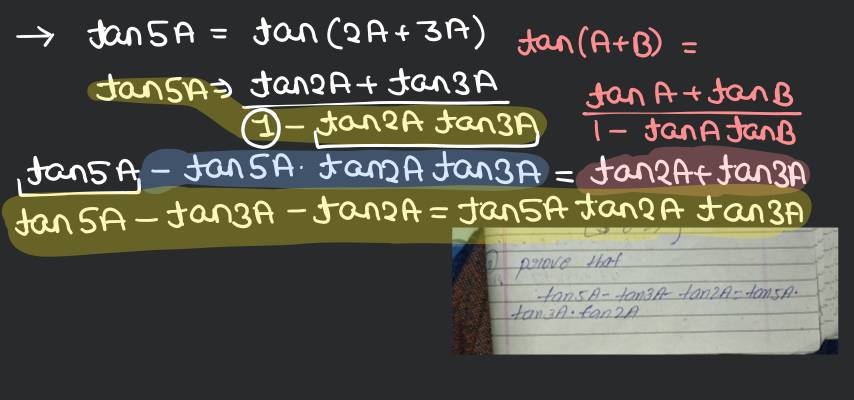 → tan5A = tan(2A+3A)
tan(A+B) =
tan A + tanB
1 - tanA tanB
tan5A ⇒ tan2A + tan3A
1 - tan2A tan3A
tan5A - tan5A · tan2A tan3A = tan2A + tan3A
tan5A - tan3A - tan2A = tan5A tan2A tan3A
prove that
tan5A - tan3A - tan2A = tan5A ·
tan3A · tan2A